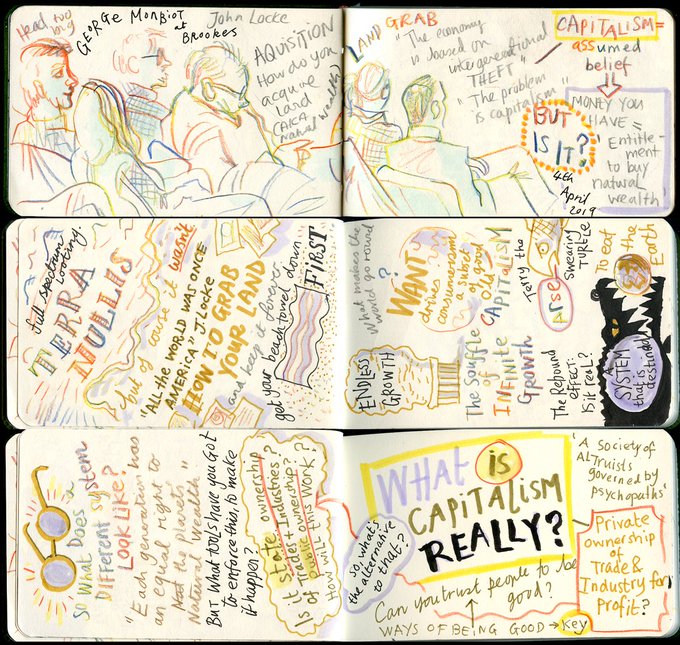 Head too
long
GEORGE MONBIOT
at
BROOKES
John Locke
AQUISITION
How do you
acquire
land
(AKA
natural wealth)
LAND GRAB
"The economy
is based on
intergenerational
THEFT"
"The problem
is capitalism"
CAPITALISM =
assumed
belief
MONEY YOU
HAVE "
Entitle-
ment to
buy
natural
wealth'
BUT
IS IT?
4th
April
2019
full spectrum
looting.
TERRA
NULLIS
but of course it wasn't
'ALL THE WORLD WAS ONCE
AMERICA" J. Locke
HOW TO GRAB
YOUR LAND
and keep it forever
get your beach towel down
FIRST
What makes the
world go round
?
WANT
drives
consumerism
a habit
of good
old
CAPITALISM
Terry the
Swearing
TURTLE
Arse!
To eat
the
Earth
ENDLESS
GROWTH
The Souffle
of
INFINITE
Growth
The Rebound
EFFECT:
IS it real?
A
SYSTEM
that is
destined
So What Does a
Different system
LOOK LIKE?
"Each generation has
an equal right to
Nat the planets
Natural Wealth"
BUT What tools have you Got
to enforce this, to make
it happen?
Is it state ownership
of Trade + Industries?
Or public ownership?
HOW will THIS WORK?
WHAT is
CAPITALISM
REALLY?
so, what's
the alternative
to that?
'A society of
ALTruists
governed by
psychopaths'
Private
ownership
of
Trade &
Industry for
Profit?
Can you trust people to be
good?
WAYS OF BEING GOOD → Key